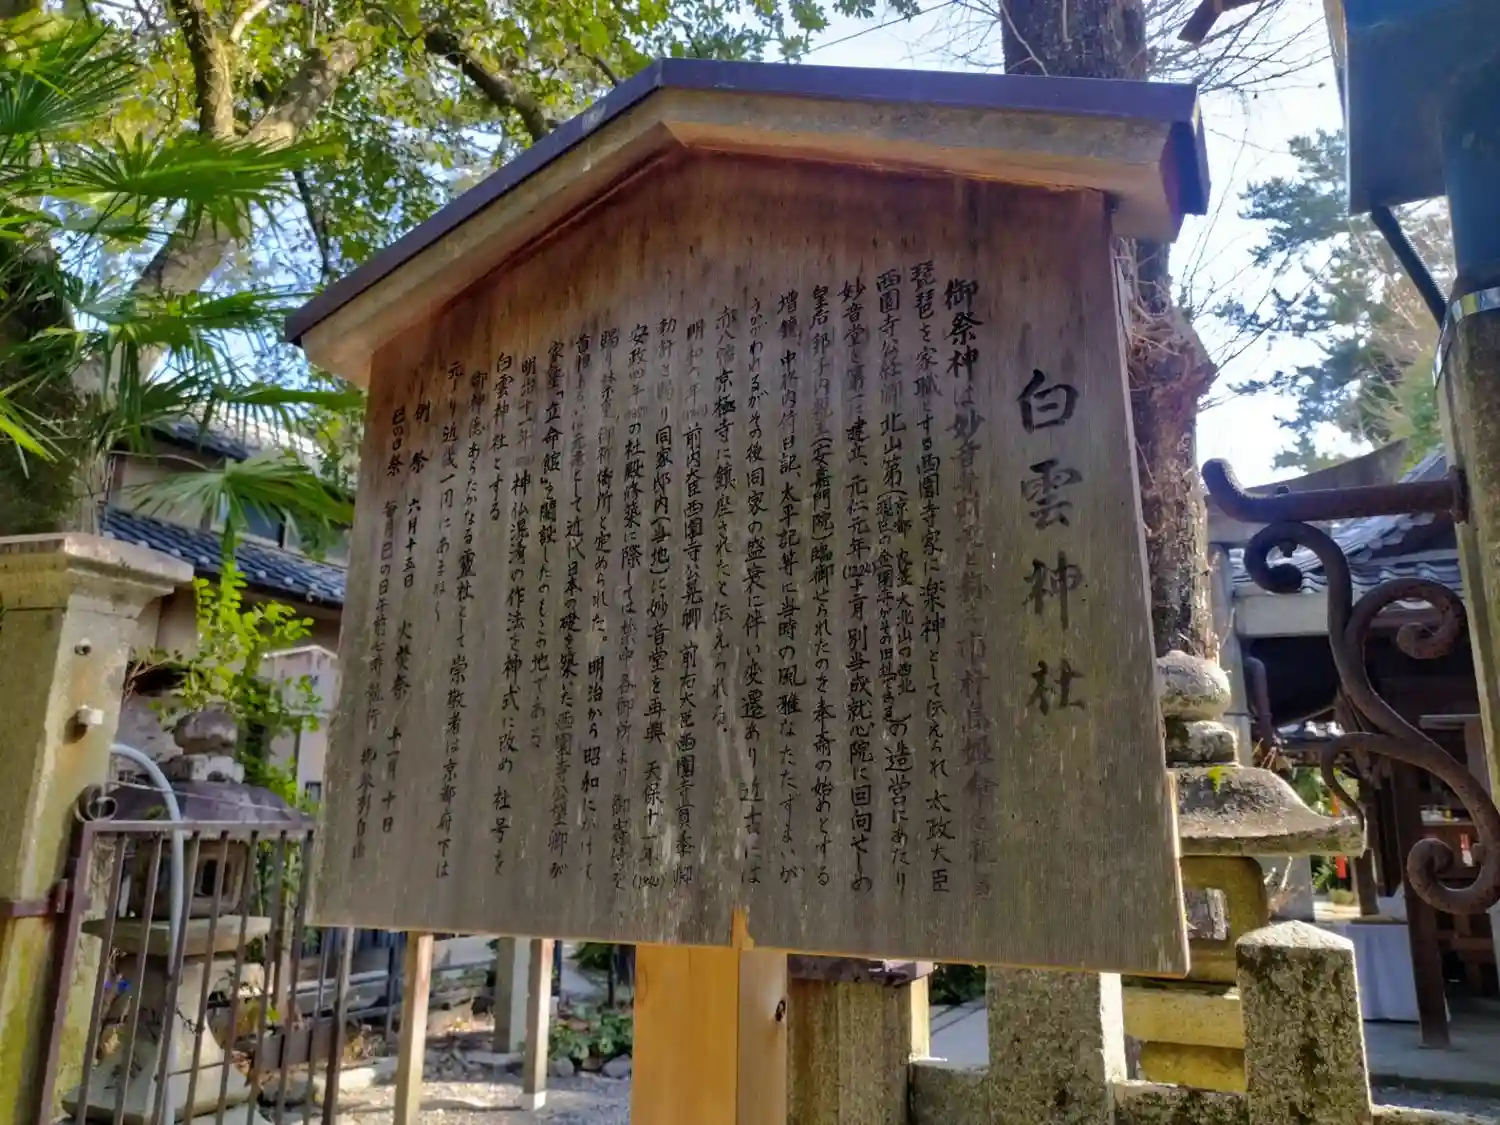 白雲神社
御祭神は妙音弁財天と称え市杵島姫命を祀る
琵琶を家職とする西園寺家に楽神として伝えられ太政大臣
西園寺公経卿 北山第(京都 衣笠 大北山の西北 現在の金閣寺がその旧地)の造営にあたり
妙音堂を第一に建立、元仁元年(1224)十二月 別当成就心院に回向せしめ
皇后 邦子内親王(安嘉門院)臨御せられたのを奉斎の始めとする
増鏡、中務内侍日記、太平記等に当時の風雅なたたずまいが
うかがわれるがその後同家の盛衰に伴い変遷あり 近古には
赤八幡京極寺に鎮座されたと伝えられる。
明和六年(1769)前内大臣西園寺公晃卿 前右大臣西園寺賞季卿
勅許を賜り同家邸内(当地)に妙音堂を再興 天保十一年(1840)
安政四年の社殿修築に際しては 各御所より御寄付を
賜り禁裏御祈祷所と定められた。明治から昭和にかけて
首相あるいは元老として近代日本の礎を築いた西園寺公望卿が
家塾「立命館」を開設したのもこの地である
明治十一年 神仏混淆の作法を神式に改め 社号を
白雲神社とする
御神徳あらたかなる霊社として崇敬者は京都府下は
元より近畿一円にあまねく
例祭 六月十五日 火焚祭 十一月十日
巳の日祭 毎月巳の日午前七時執行 拝参列自由